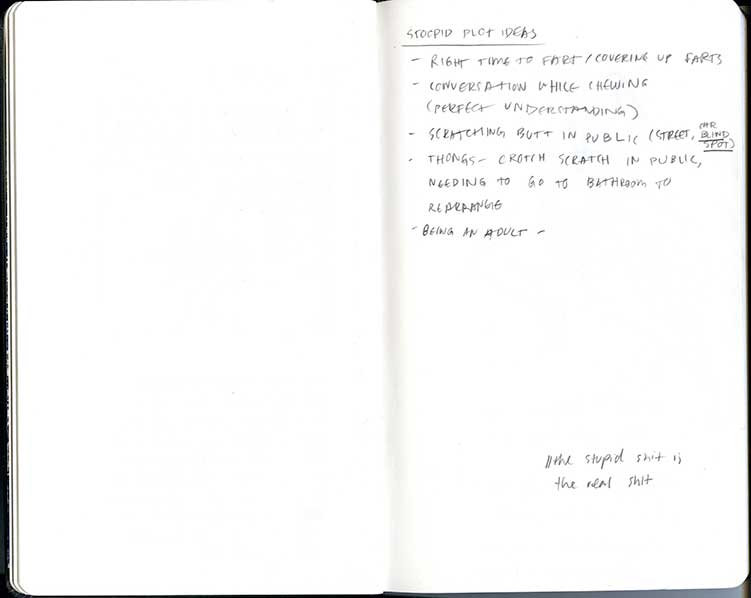 STOOPID PLOT IDEAS
- RIGHT TIME TO FART/COVERING UP FARTS
- CONVERSATION WHILE CHEWING
(PERFECT UNDERSTANDING)
- SCRATCHING BUTT IN PUBLIC (STREET, CAR BLIND SPOT)
- THONGS - CROTCH SCRATCH IN PUBLIC,
NEEDING TO GO TO BATHROOM TO
REARRANGE
- BEING AN ADULT -
//the stupid shit is
the real shit